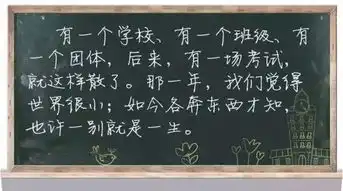 有一个学校、有一个班级、有
一个团体，后来，有一场考试，
就这样散了。那一年，我们觉得
世界很小；如今各奔东西才知，
也许一别就是一生。